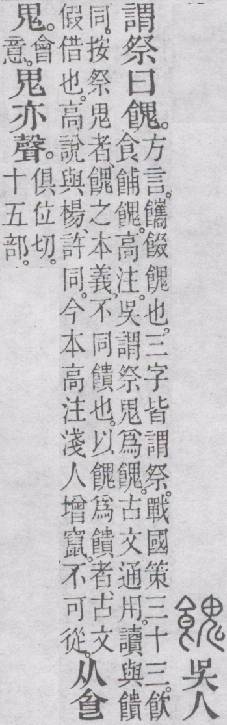 餽 吳人
謂祭曰餽。方言。餟餽也。三字皆謂祭。戰國策三十三。飲
食餔餽。高注。吳謂祭鬼爲餽。古文通用。讀與饋
同。按祭鬼者、餽之本義。不同饋也。以餽爲饋者、古文
假借也。高說與楊、許同。今本高注淺人增竄。不可從。从食
鬼。會意。鬼亦聲。俱位切。十五部。